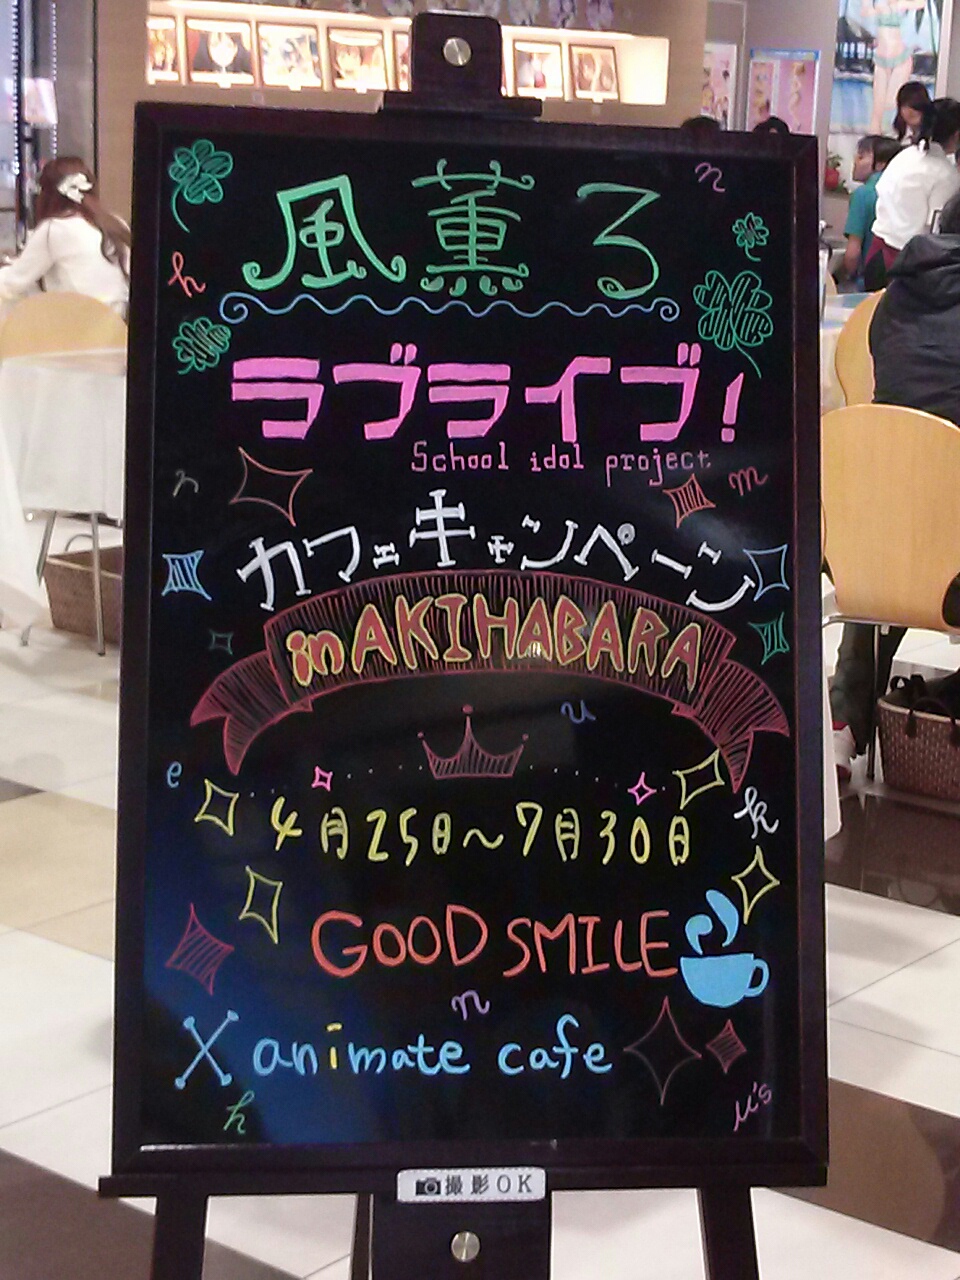 風薫る
ラブライブ!
School idol project
カフェキャンペーン
in AKIHABARA
4月25日～7月30日
GOOD SMILE
X animate cafe
n
h
r
m
u
e
k
n
h
μ's
撮影OK